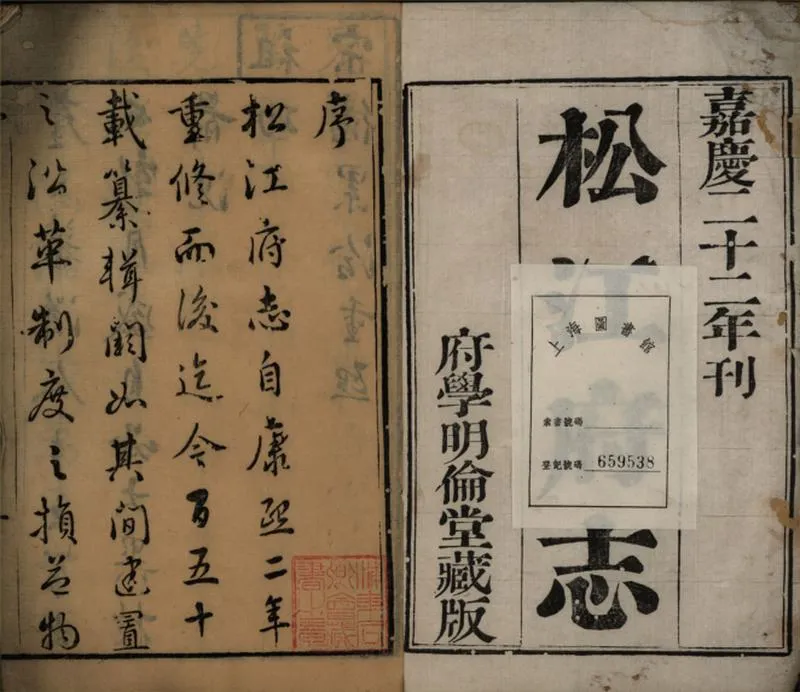 嘉慶二十二年刊
松江府志
上海圖書館
索書號碼
登記號碼 659538
府學明倫堂藏版
序
松江府志自康熙二年
重修而後迄今百五十
載纂輯闕如其間建置
之沿革制度之損益物